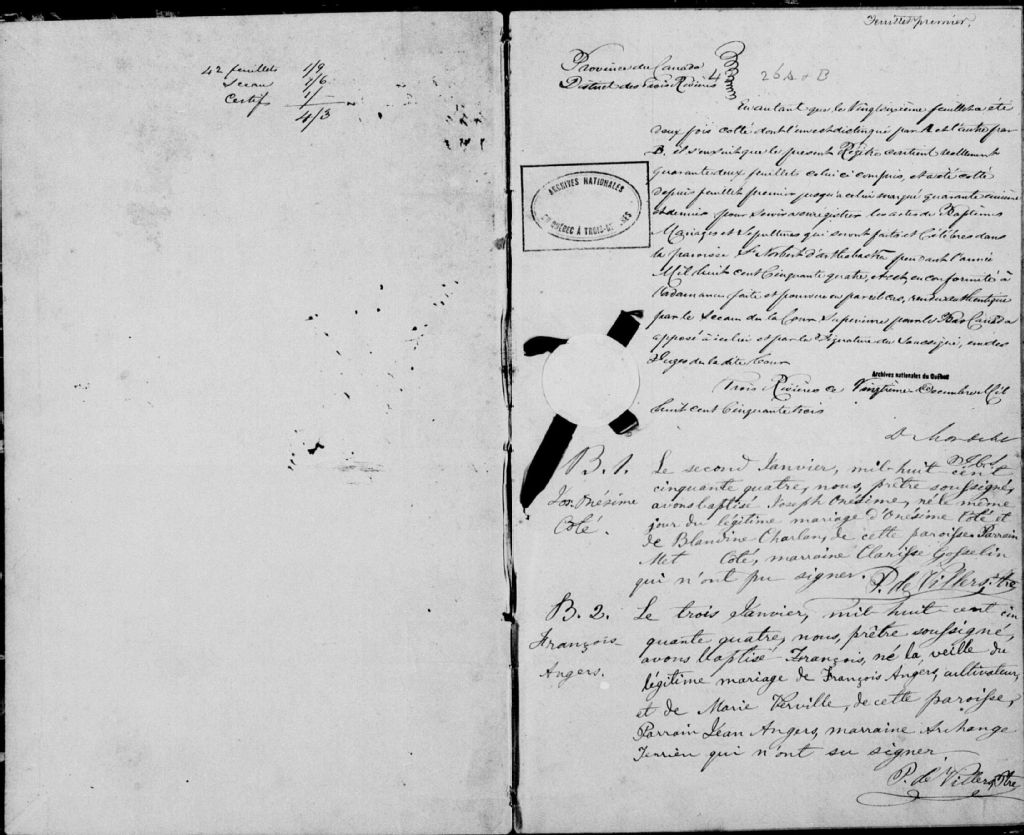 42 feuillets 1/9
Sceau 1/6
Certif 1/
4/3
Feuillet premier.
Province du Canada
District des Trois Rivières 4
26 A & B
En autant que le Vingtsixième feuillet a été
deux fois cotté dont l'un est distingué par A et l'autre par
B. et s'ensuit que le présent Régitre contient réellement
quarante deux feuillets celui ci compris, et a été cotté
depuis feuillet premier jusqu'à celui marqué quarante
et dernier pour servir à enregistrer les actes de Baptêmes
Mariages et Sépultures qui seront faits et Célébrés dans
la paroisse St Norbert d'arthabaska pendant l'année
Mil huit cent Cinquante quatre, et est, en conformité à
faite et pourvue en pareil cas, rendu authentique
par le Sceau de la Cour Supérieure pour le Bas Canada
apposé à icelui et par la Signature du Soussigné, un des
Juges de la dite Cour
Trois Rivières ce Vingtième Décembre Mil
huit cent Cinquante trois
ARCHIVES NATIONALES
DU QUÉBEC À TROIS-RIVIÈRES
Archives nationales du Québec
B. 1.
Jos. Onésime
Côté.
Le second Janvier, mil-huit cent
cinquante quatre, nous, prêtre soussigné,
avons baptisé Joseph Onésime, né le même
jour du légitime mariage d'Onésime Côté et
de Blandine Charland, de cette paroisse. Parrain
Met Coté, marraine Clarisse Gosselin
qui n'ont pu signer. P. de Villers, Ptre
B. 2.
François
Angers.
Le trois Janvier, mil huit cent cin
quante quatre, nous, prêtre soussigné,
avons baptisé François, né la veille du
légitime mariage de François Angers, cultivateur,
et de Marie Verville, de cette paroisse,
Parrain Jéan Angers, marraine Archange
Terrien qui n'ont su signer
P. de Villers, Ptre